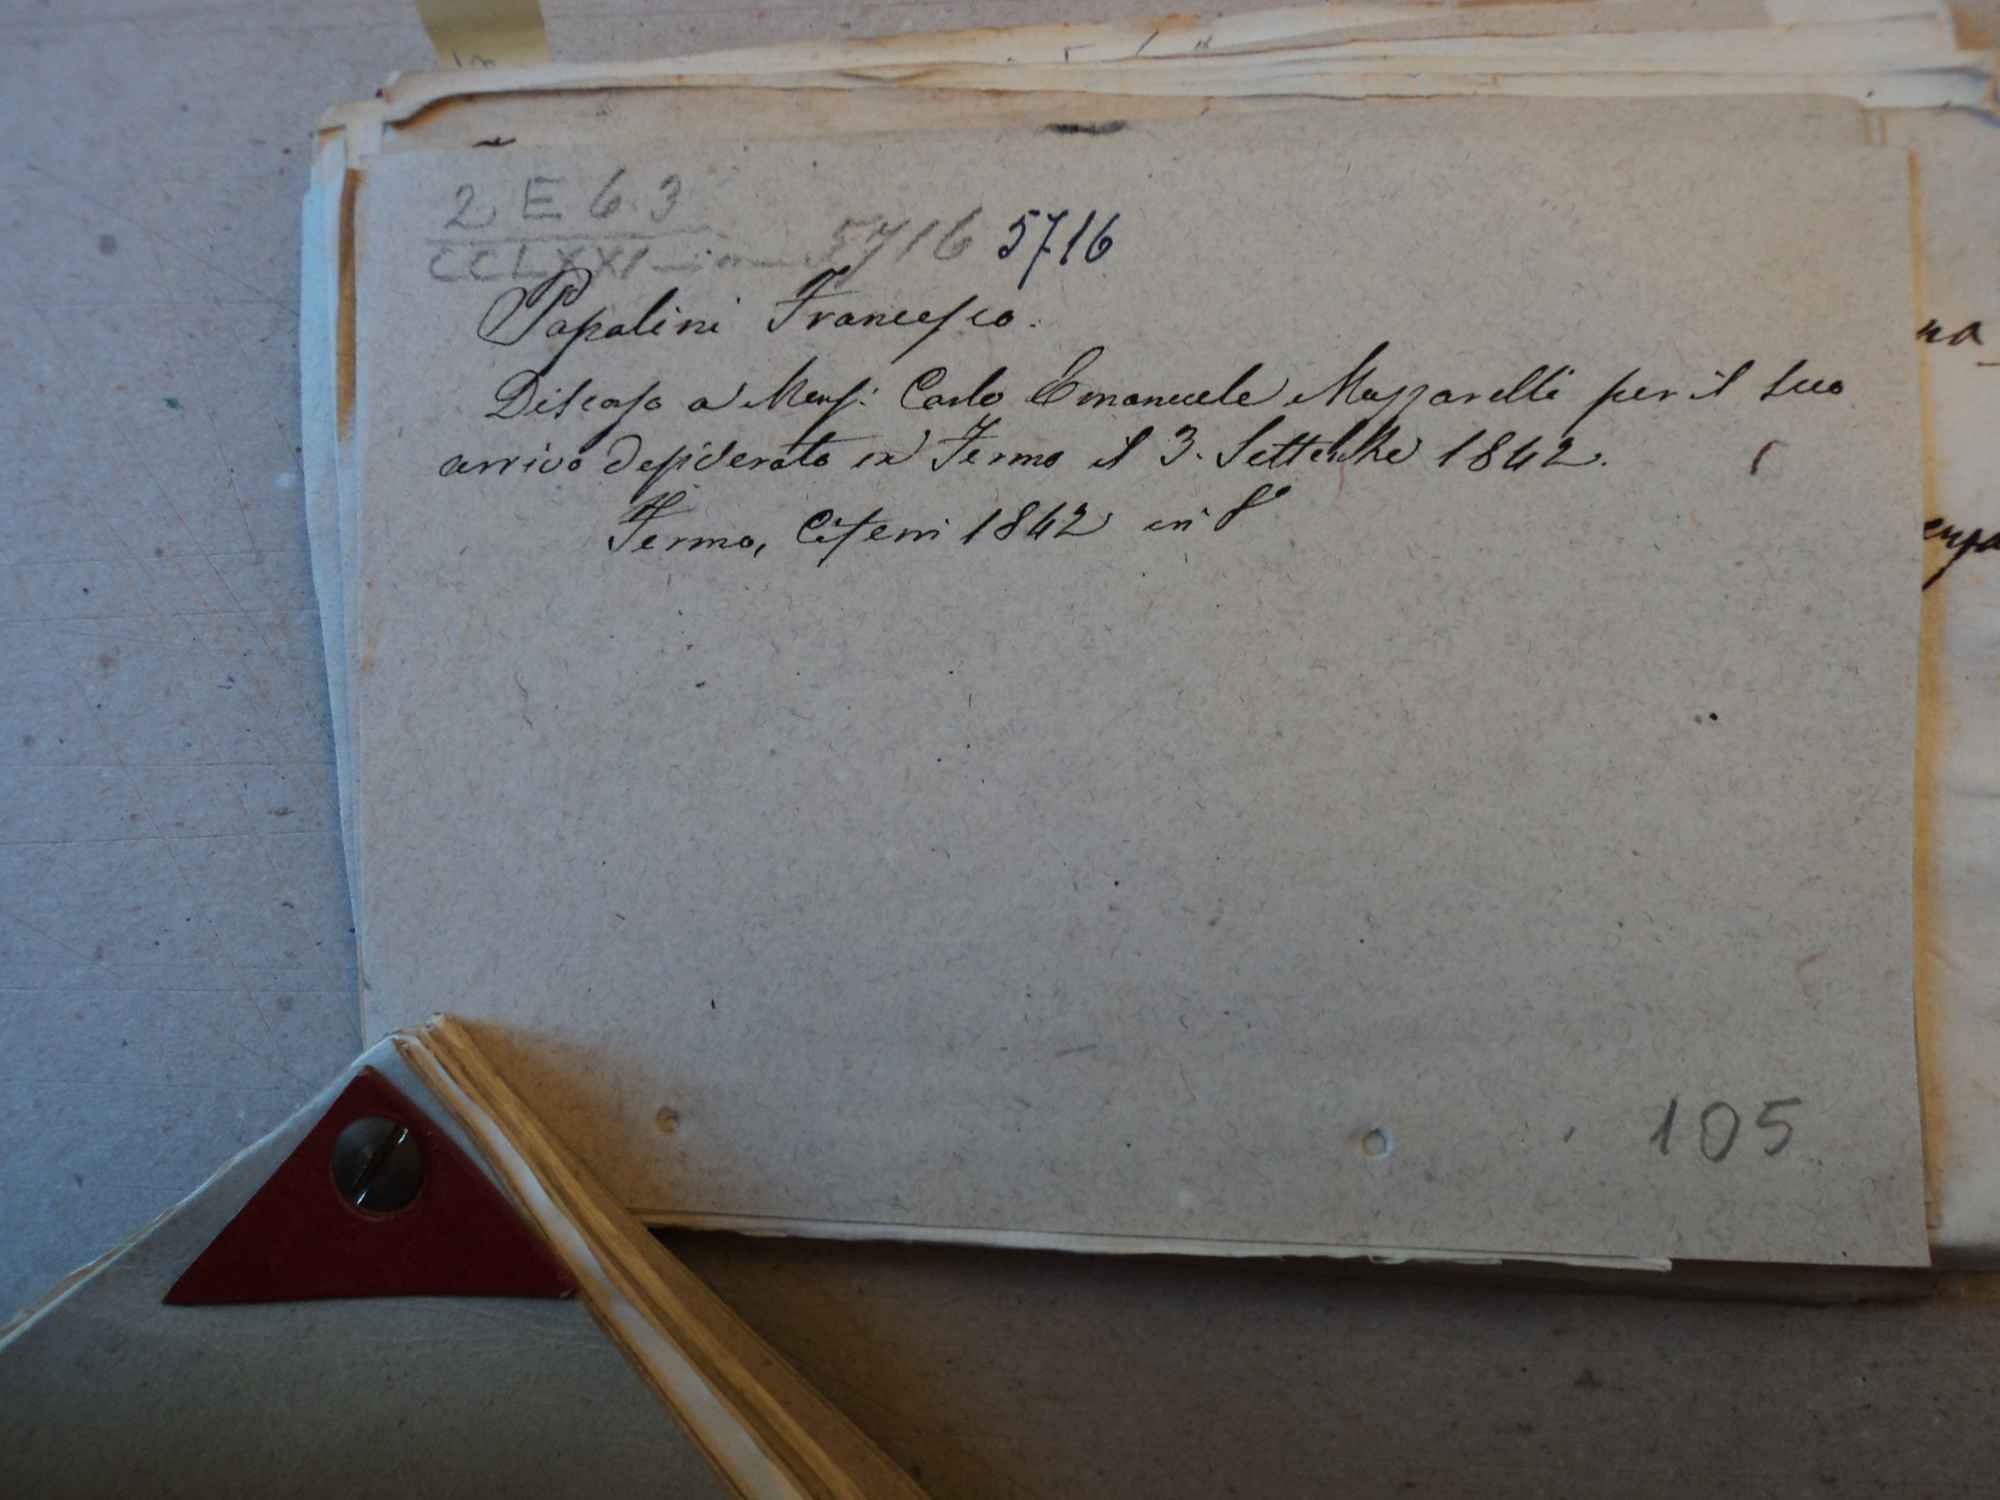 2 E 6 3
CCLXXI 5716 5716
Papalini Francesco.
Discorso a Mons: Carlo Emanuele Muzzarelli per il suo
arrivo desiderato in Fermo il 3. Settembre 1842.
Fermo, Ciferri 1842 in 8°
105